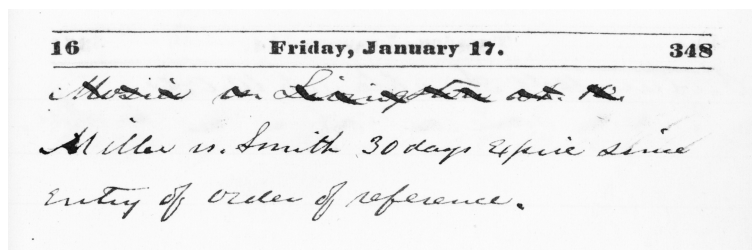 16 Friday, January 17. 348
Mosier vs. Livingston at 10.
Miller vs. Smith 30 days Expire since
entry of order of reference.